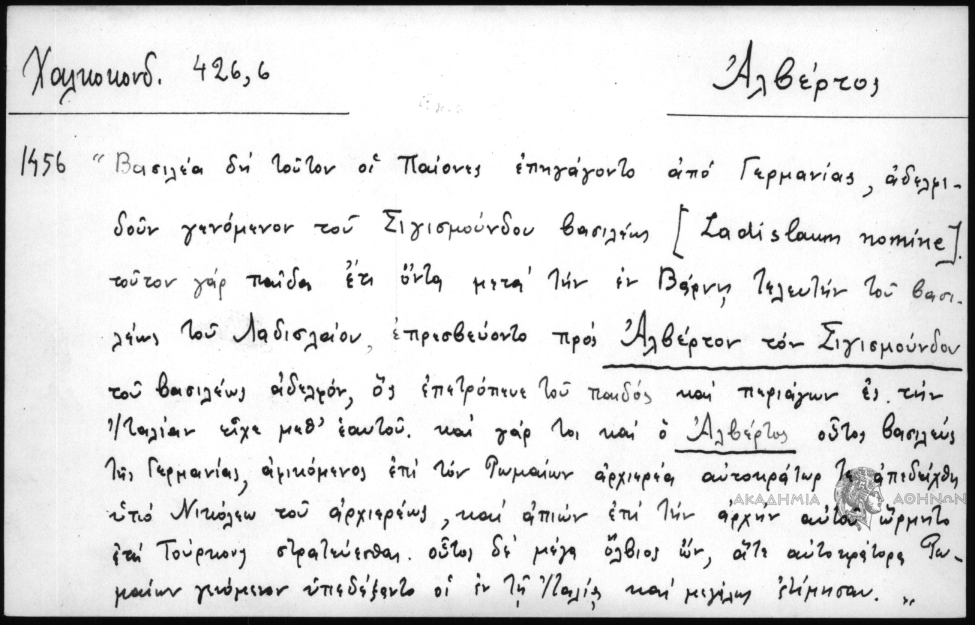 Χαλκοκονδ. 426,6
Ἀλβέρτος
1456 "Βασιλέα δή τοῦτον οἱ Παίονες ἐπηγάγοντο ἀπό Γερμανίας, ἀδελφι-
δοῦν γενόμενον τοῦ Σιγισμούνδου βασιλέως [Ladislaum nomine].
τοῦτον γάρ παῖδα ἔτι ὄντα μετά τήν ἐν Βάρνῃ τελευτήν τοῦ βασι-
λέως τοῦ Λαδισλαίου, ἐπρεσβεύοντο πρός Ἀλβέρτον τόν Σιγισμούνδου
τοῦ βασιλέως ἀδελφόν, ὅς ἐπετρόπευε τοῦ παιδός καί περιάγων ἐς τήν
Ἰταλίαν εἶχε μεθ' ἑαυτοῦ. καί γάρ τοι καί ὁ Ἀλβέρτος οὗτος βασιλεύς
τῆς Γερμανίας, ἀφικόμενος ἐπί τόν Ῥωμαίων ἀρχιερέα αὐτοκράτωρ τε ἀπεδείχθη
ὑπό Νικόλεω τοῦ ἀρχιερέως, καί ἀπιών ἐπί τήν ἀρχήν αὐτοῦ ὥρμητο
ἐπί Τούρκους στρατεύεσθαι. οὗτος δέ μέγα ὄλβιος ὤν, ἅτε αὐτοκράτορα Ῥω-
μαίων γενόμενον ὑπεδέξαντο οἱ ἐν τῇ Ἰταλίᾳ καί μεγάλως ἐτίμησαν. "
ΑΚΑΔΗΜΙΑ ΑΘΗΝΩΝ